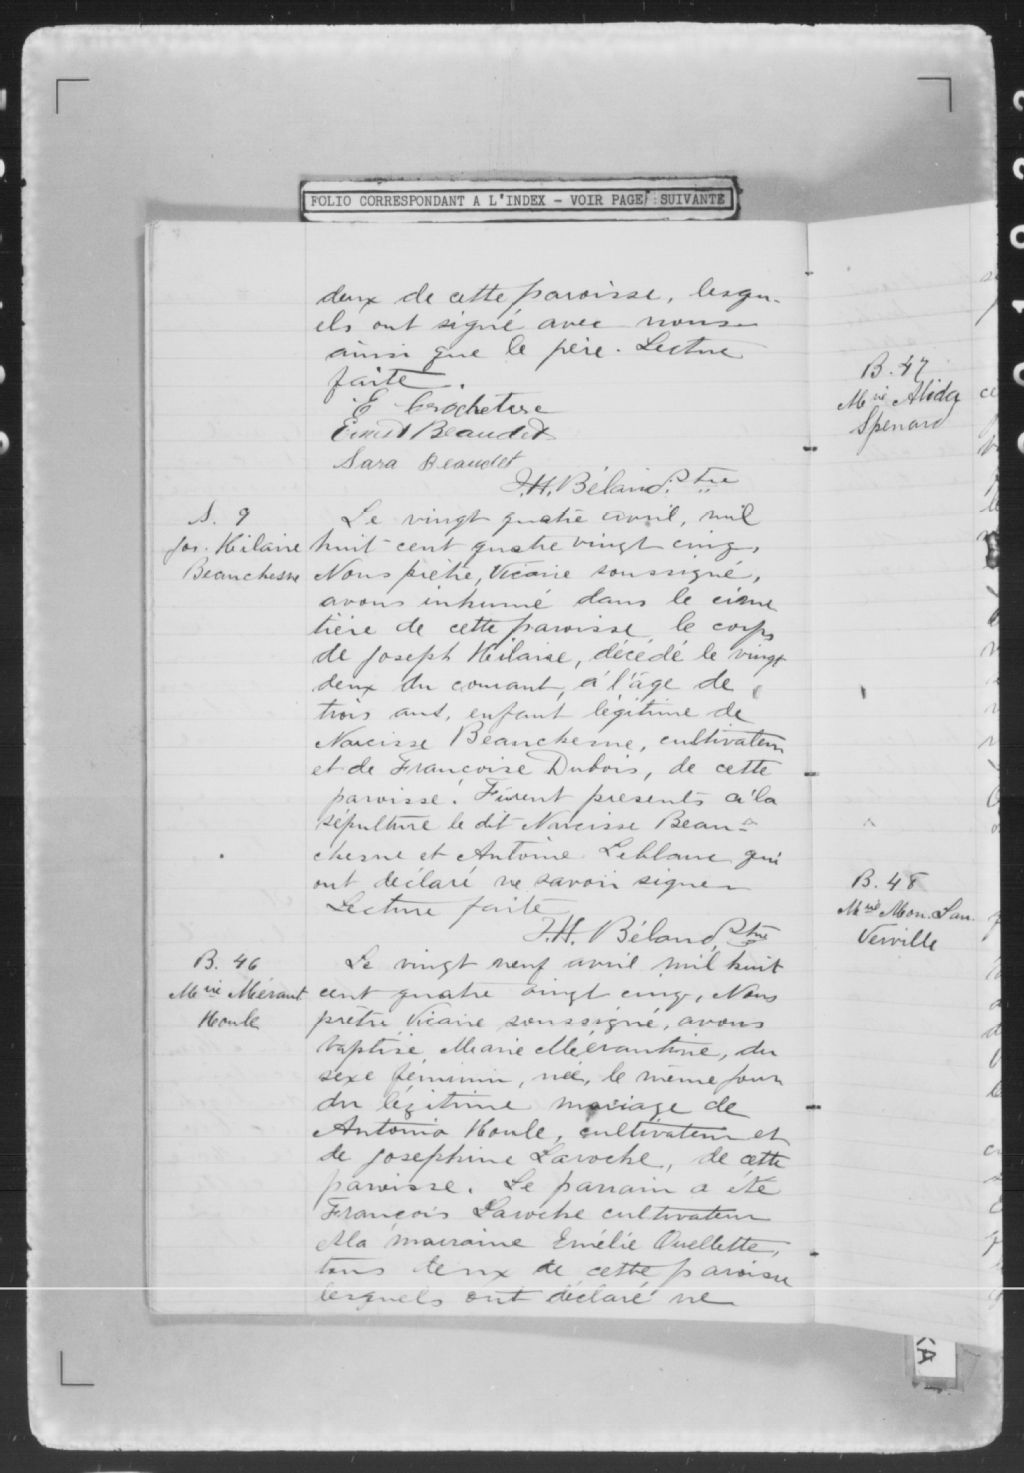 FOLIO CORRESPONDANT A L'INDEX - VOIR PAGE SUIVANTE
deux de cette paroisse, lesqu-
els ont signé avec nous
ainsi que le père. Lecture
faite.
E Crochetière
Ernest Beaudet
Sara Beaudet
J.H. Béland Ptre
S. 9
Jos. Hilaire
Beauchesne
Le vingt quatre avril, mil
huit cent quatre vingt cinq,
Nous prêtre, Vicaire soussigné,
avons inhumé dans le cime
tière de cette paroisse, le corps
de Joseph Hilaire, décédé le vingt
deux du courant, à l'âge de
trois ans, enfant légitime de
Narcisse Beauchesne, cultivateur
et de Françoise Dubois, de cette
paroisse. Furent presents à la
sépulture le dit Narcisse Beau-
chesne et Antoine Leblanc qui
ont déclaré ne savoir signer
Lecture faite
J.H. Béland, Ptre
B. 46
Mrie Mérant
Houle
Le vingt neuf avril mil huit
cent quatre vingt cinq, Nous
prêtre Vicaire soussigné, avons
baptisé Marie Mérantine, du
sexe féminin, née, le même jour
du légitime mariage de
Antonio Houle, cultivateur et
de Josephine Laroche, de cette
paroisse. Le parrain a été
François Laroche cultivateur
et la marraine Emélie Ouellette,
tous deux de cette paroisse
lesquels ont déclaré ne
B. 47
Mrie Alida
Spenard
B. 48
Mrie Mon. Lau.
Verville